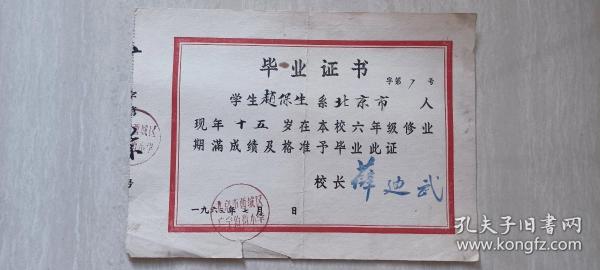 毕业证书
字第7号
学生赵保生系北京市人
现年十五岁在本校六年级修业
期滿成绩及格准予毕业此证
校长 薛迪武
一九六三年七月 日
号
孔夫子旧书网
www.kongfz.com